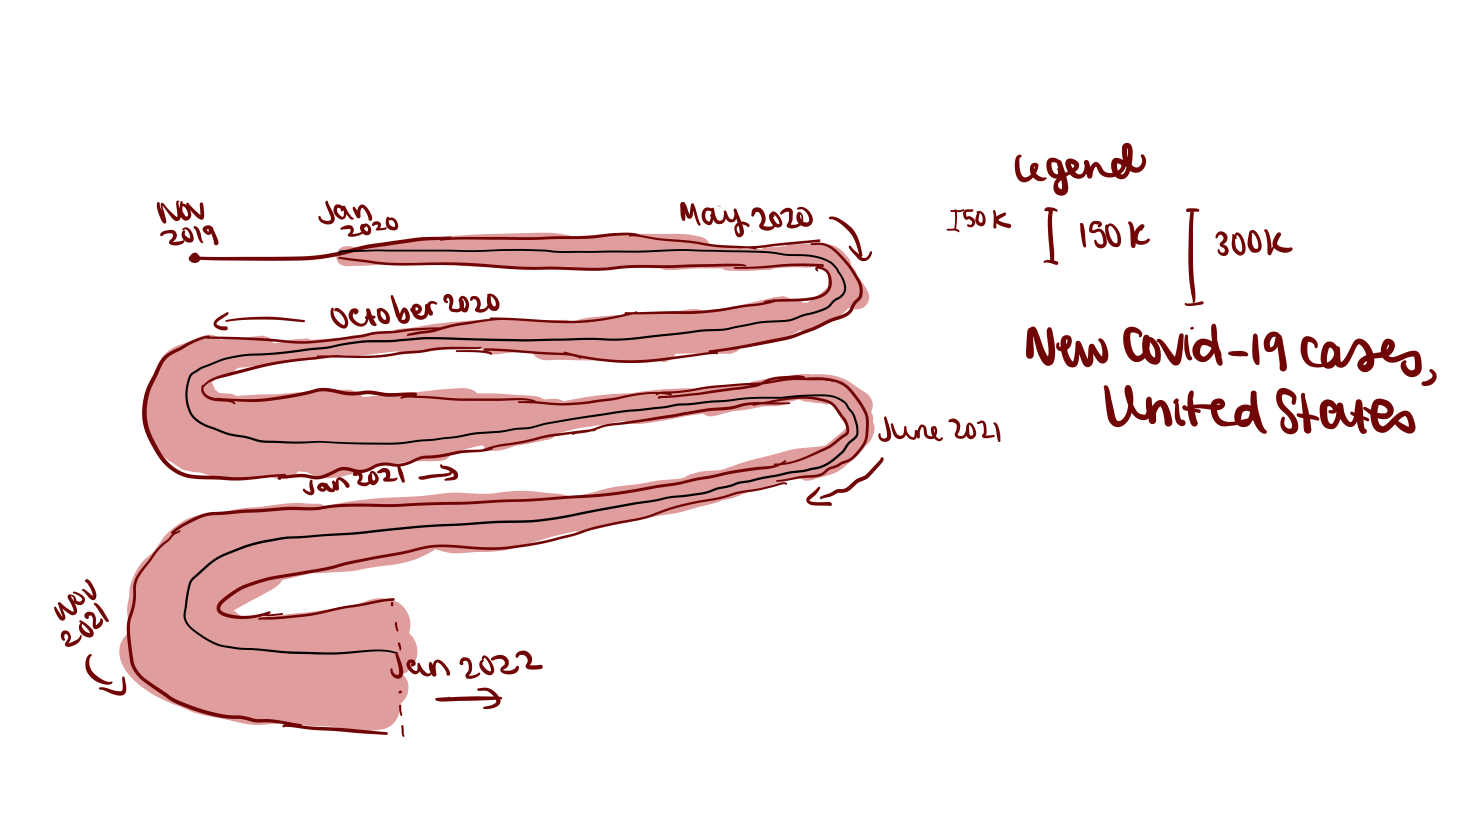 Nov
2019
Jan
2020
May 2020
October 2020
Jan 2021
June 2021
Nov
2021
Jan 2022
Legend
50K
150K
300K
New Covid-19 cases,
United States